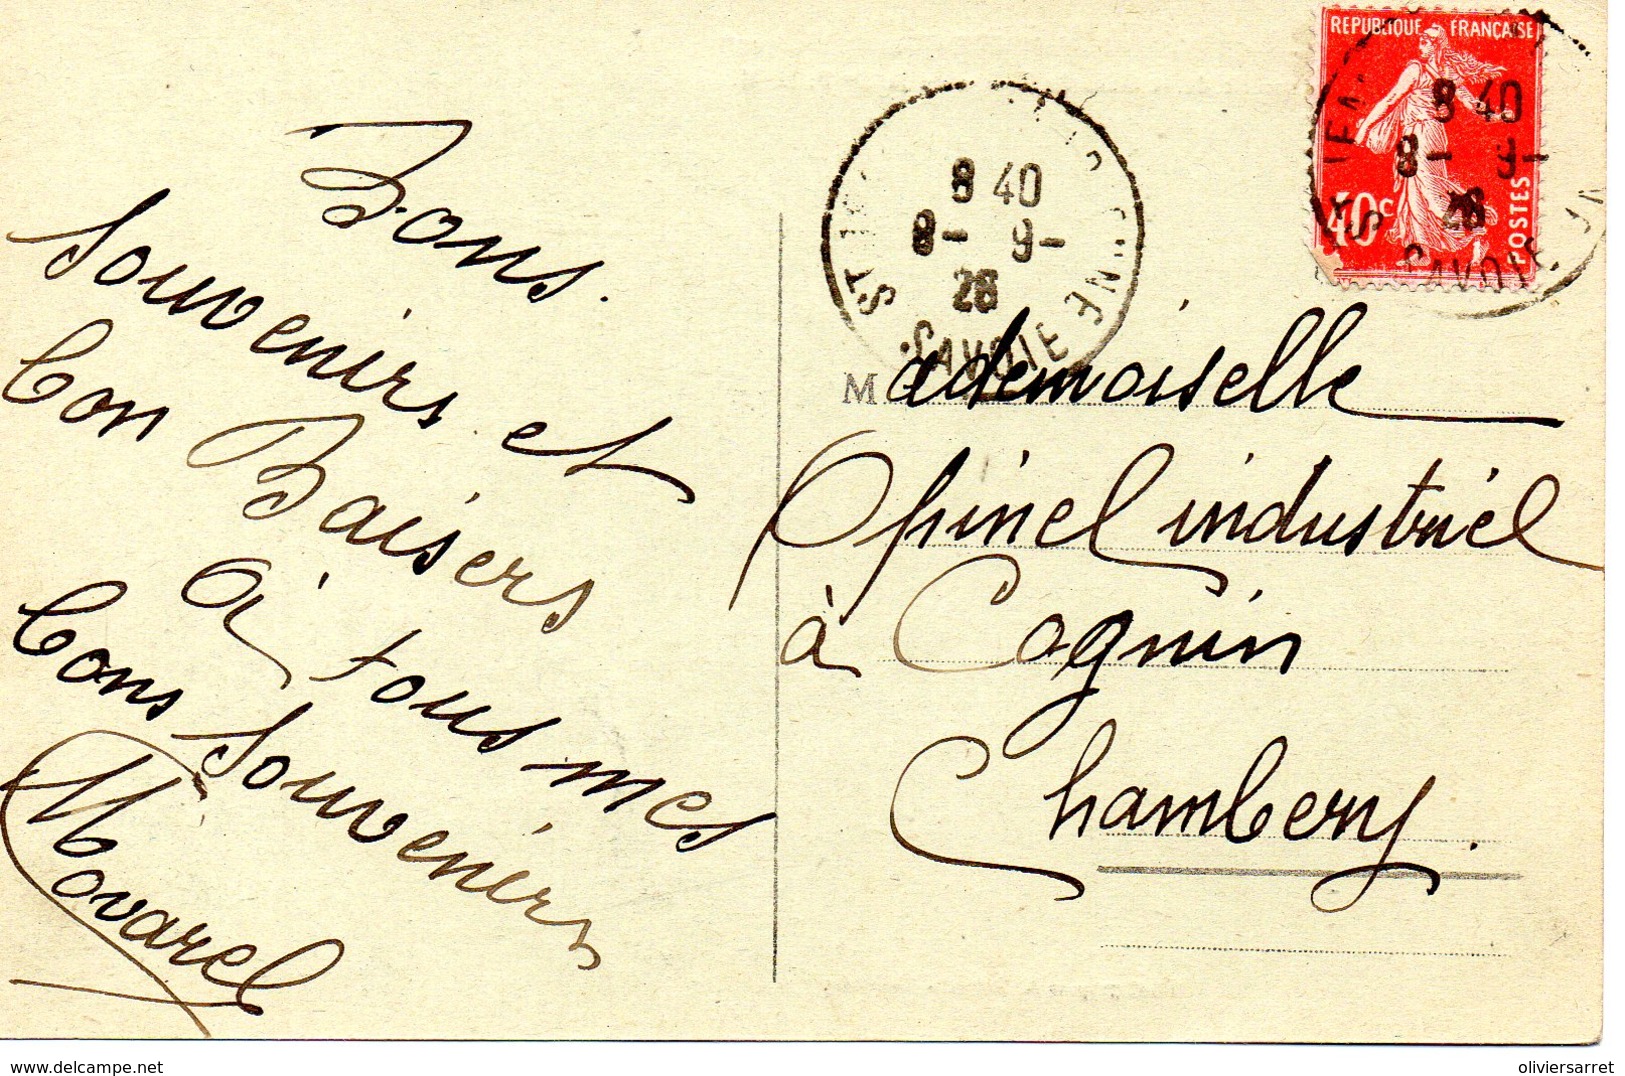 Bons.
souvenirs et
bon Baisers
à tous mes
bons souvenirs
Novarel
RÉPUBLIQUE FRANÇAISE
8 40
8 - 9 -
26
40c
POSTES
SAVOIE
8 40
8 - 9 -
26
SAVOIE
Mademoiselle
Opinel industriel
à Cognin
Chambery.
delcampe.net
oliviersarret